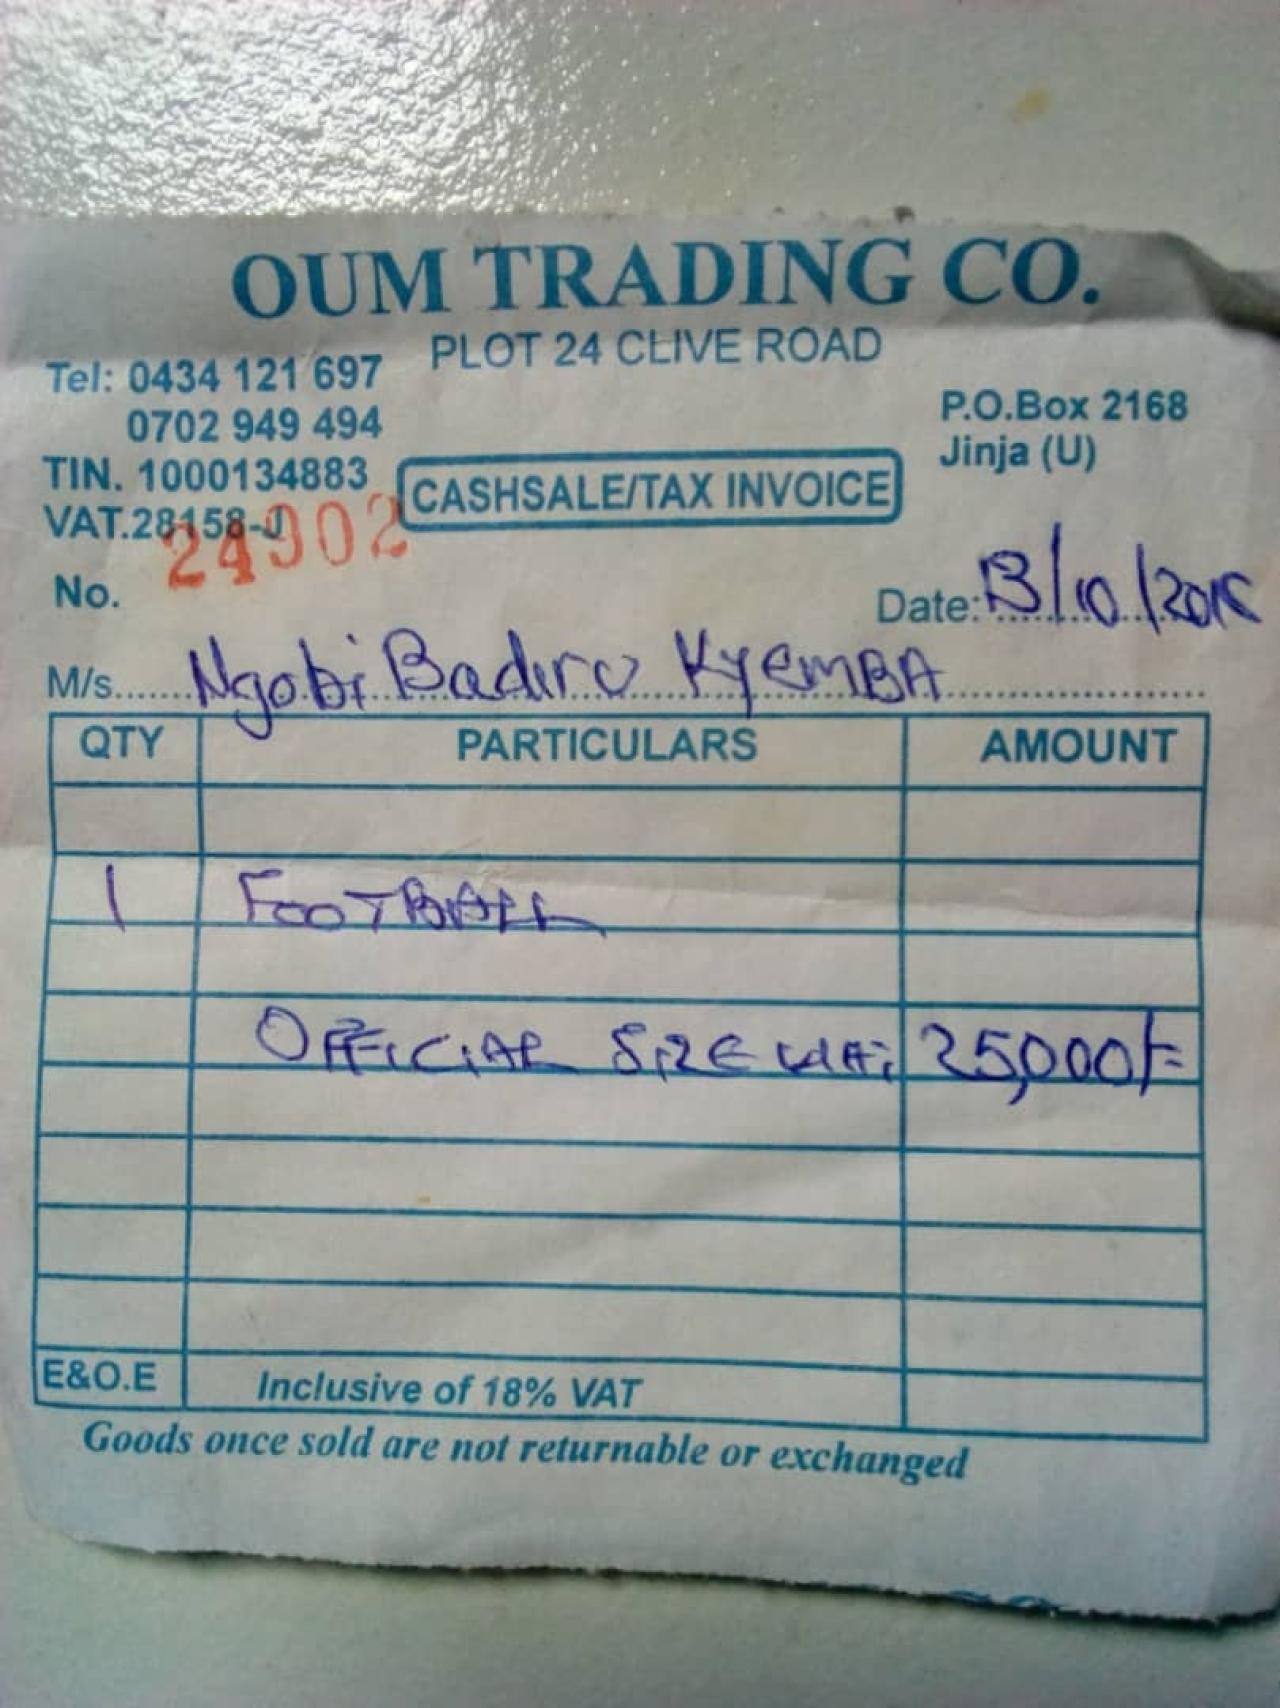 OUM TRADING CO.
PLOT 24 CLIVE ROAD
Tel: 0434 121 697
0702 949 494
P.O.Box 2168
Jinja (U)
TIN. 1000134883
VAT.28158-J
CASHSALE/TAX INVOICE
No. 24902
Date: 13/10/2015
M/s. Ngobi Badiru KyemBA
QTY PARTICULARS AMOUNT
1 FOOTBALL
OFFICIAL SIZE 25,000/=
E&O.E Inclusive of 18% VAT
Goods once sold are not returnable or exchanged